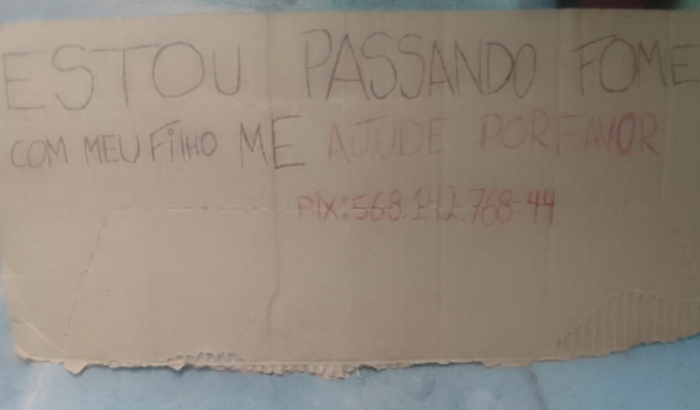 ESTOU PASSANDO FOME
COM MEU FilHO ME AJUDE POR FAVOR
Pix:568.142.768-44